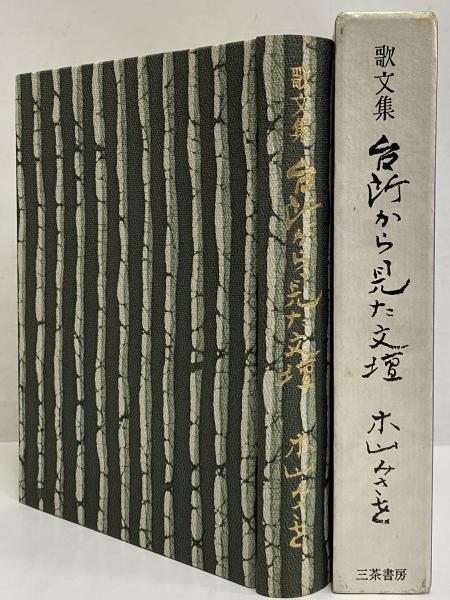 歌文集
台所から見た文壇
木山みさを
歌文集
台所から見た文壇
木山みさを
三茶書房